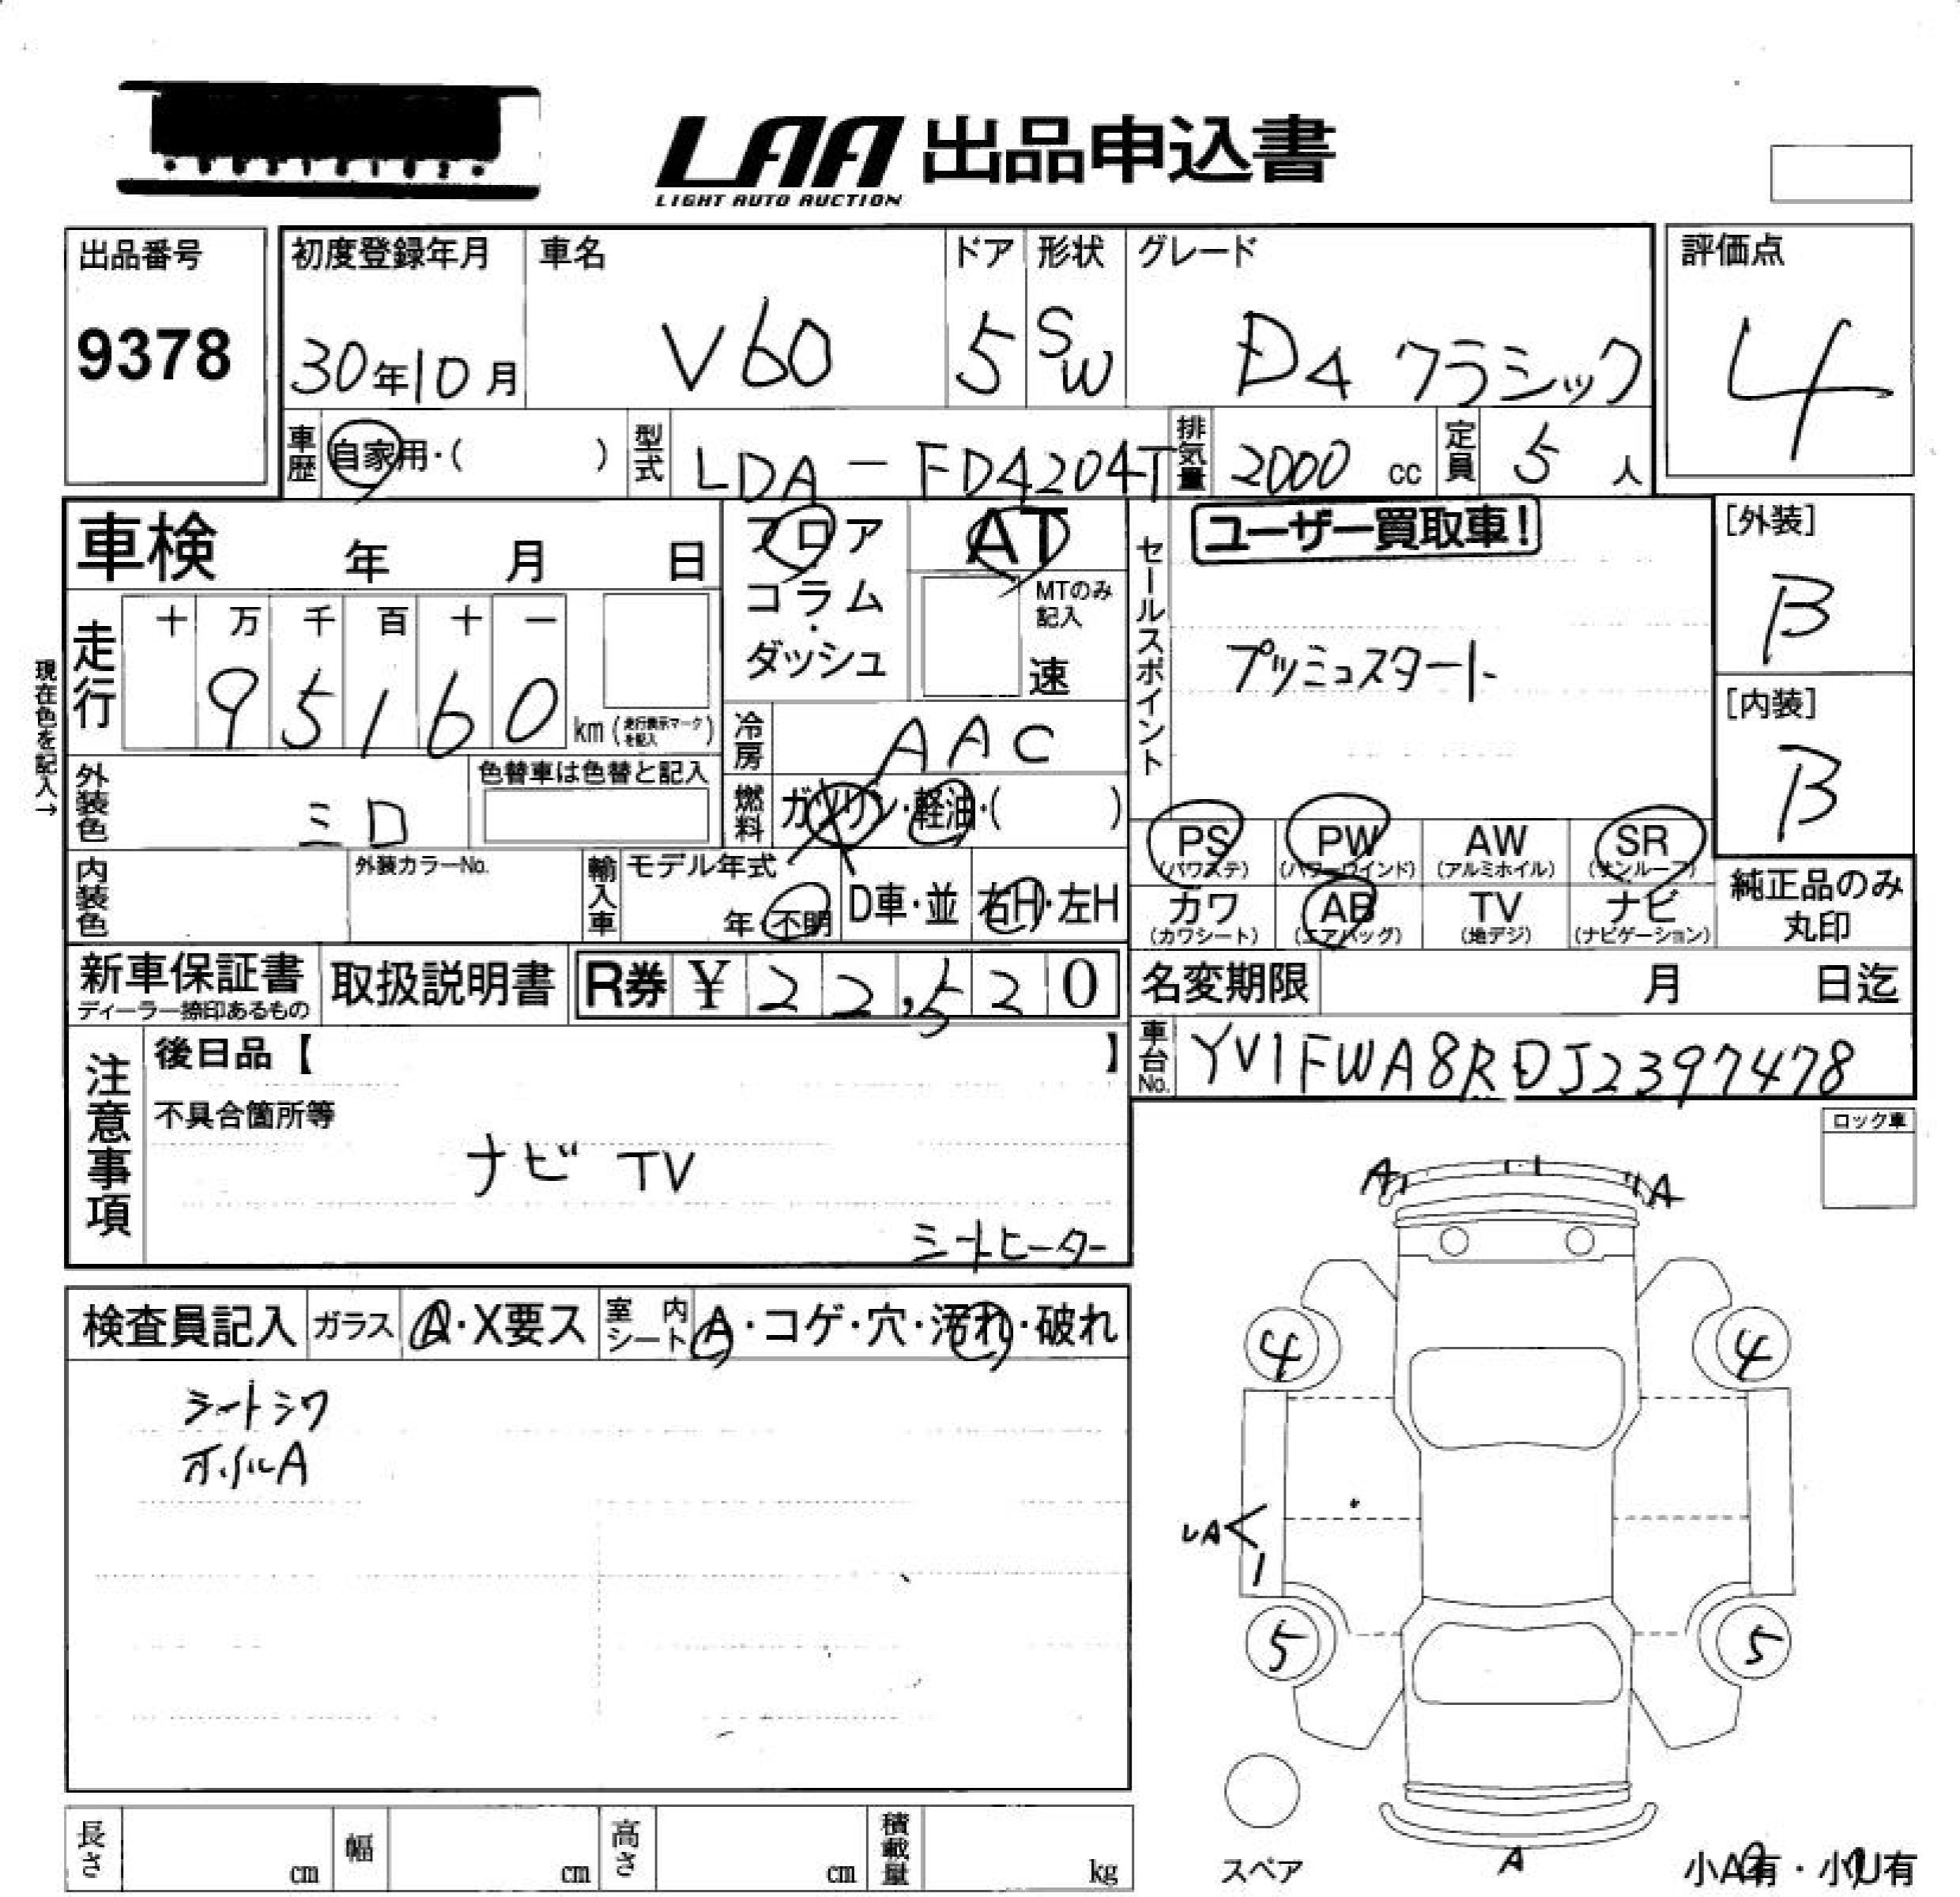 LAA 出品申込書
LIGHT AUTO AUCTION
出品番号
9378
初度登録年月
30年10月
車名
V60
ドア
5
形状
SW
グレード
D4 クラシック
評価点
4
車歴 自家用・( )
型式 LDA - FD4204T
排気量 2000 cc
定員 5 人
車検 年 月 日
フロア
コラム・
ダッシュ
AT
MTのみ
記入
速
セールスポイント
ユーザー買取車!
プッシュスタート
[外装]
B
[内装]
B
現在色を記入→
走行
十 万 千 百 十 一
9 5 1 6 0
km (走行表示マークを記入)
冷房 AAC
外装色 ミロ
色替車は色替と記入
燃料 ガソリン・軽油・( )
PS PW AW SR
(パワステ) (パワーウインド) (アルミホイル) (サンルーフ)
カワ AB TV ナビ
(カワシート) (エアバッグ) (地デジ) (ナビゲーション)
純正品のみ
丸印
内装色
外装カラーNo.
輸入車
モデル年式
年・不明
D車・並
右H・左H
新車保証書
ディーラー捺印あるもの
取扱説明書
R券 ¥ 22,520
名変期限 月 日迄
車台No. YV1FWA8RDJ2397478
注意事項
後日品【 】
不具合箇所等
ナビ TV
シートヒーター
ロック車
A A
検査員記入 ガラス A・X要ス 室内シート A・コゲ・穴・汚れ・破れ
シートシワ
ホイルA
4 4
LA<
5 5
スペア
A
小A有・小U有
長さ cm 幅 cm 高さ cm 積載量 kg